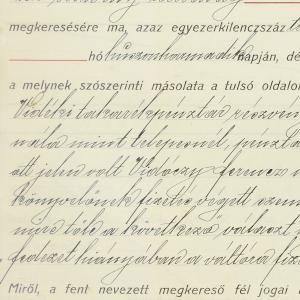 megkeresésére ma, azaz egyezerkilenczszáz
hó huszonharmadik napján, dé
a melynek szószerinti másolata a tulsó oldalo
Vidéki takarékpénztár részvén
nála mint telepesnél, pénztá
att jehn volt Vidóczy ferencz
könyvelőnek fizetés végett szem
mire tőle a következő választ
fedezet hiányában a váltóra fize
Miről, a fent nevezett megkereső fél jogai